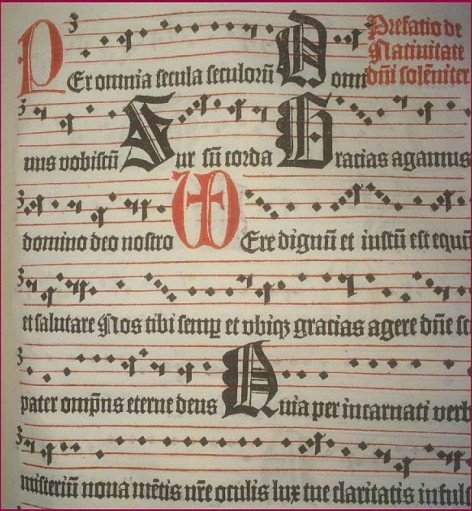 Prefatio de
Natiuitate
dñi solẽniter
Per omnia secula seculorũ Domi
nus vobiscũ Sur sũ corda Gracias agamus
domino deo nostro VEre dignũ et iustũ est equũ
et salutare Nos tibi semꝑ et vbiqꝫ gracias agere dñe sc
pater omp̃ns eterne deus Quia per incarnati verb
misteriũ noua mẽtis nr̃e oculis lux tue claritatis infuls